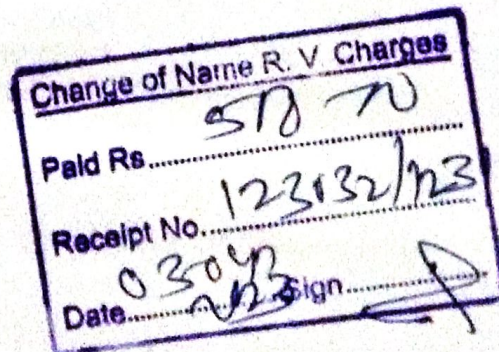 Change of Name R. V. Charges
Paid Rs.
Receipt No. 123132/123
Date Sign